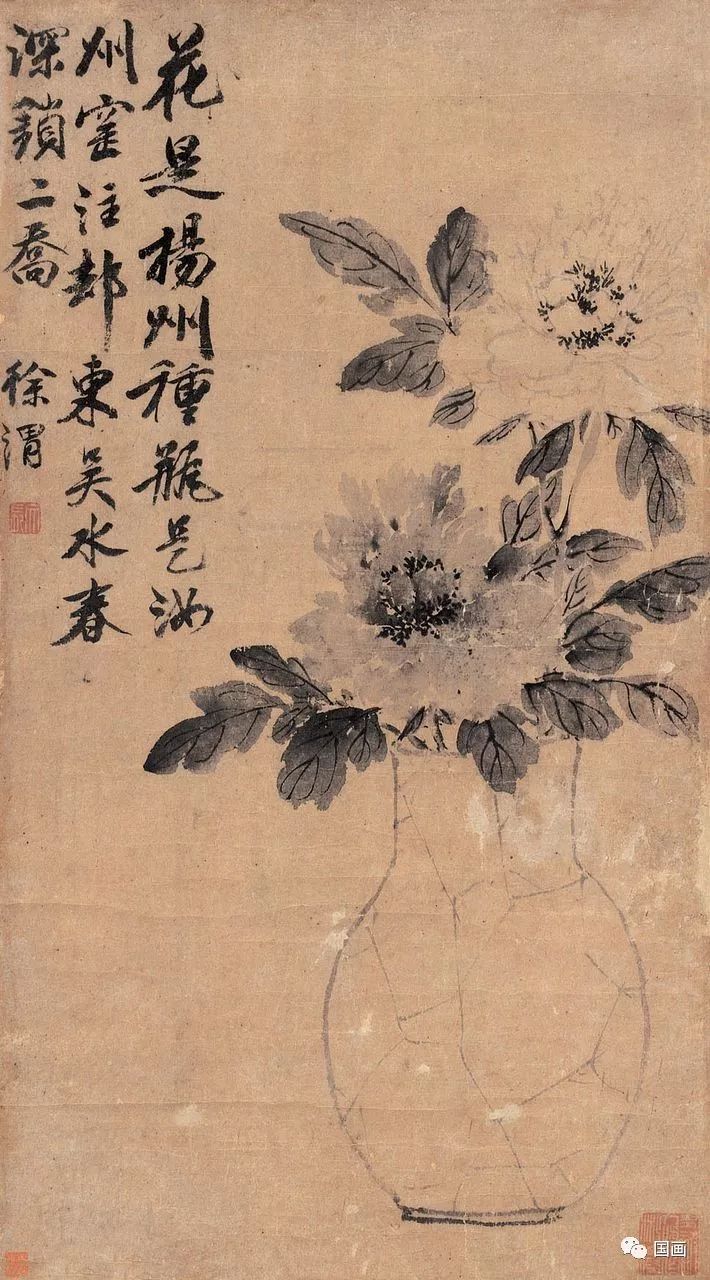 花是揚州種瓶是汝
州窑注却東吴水春
深鎖二喬
徐渭
国画